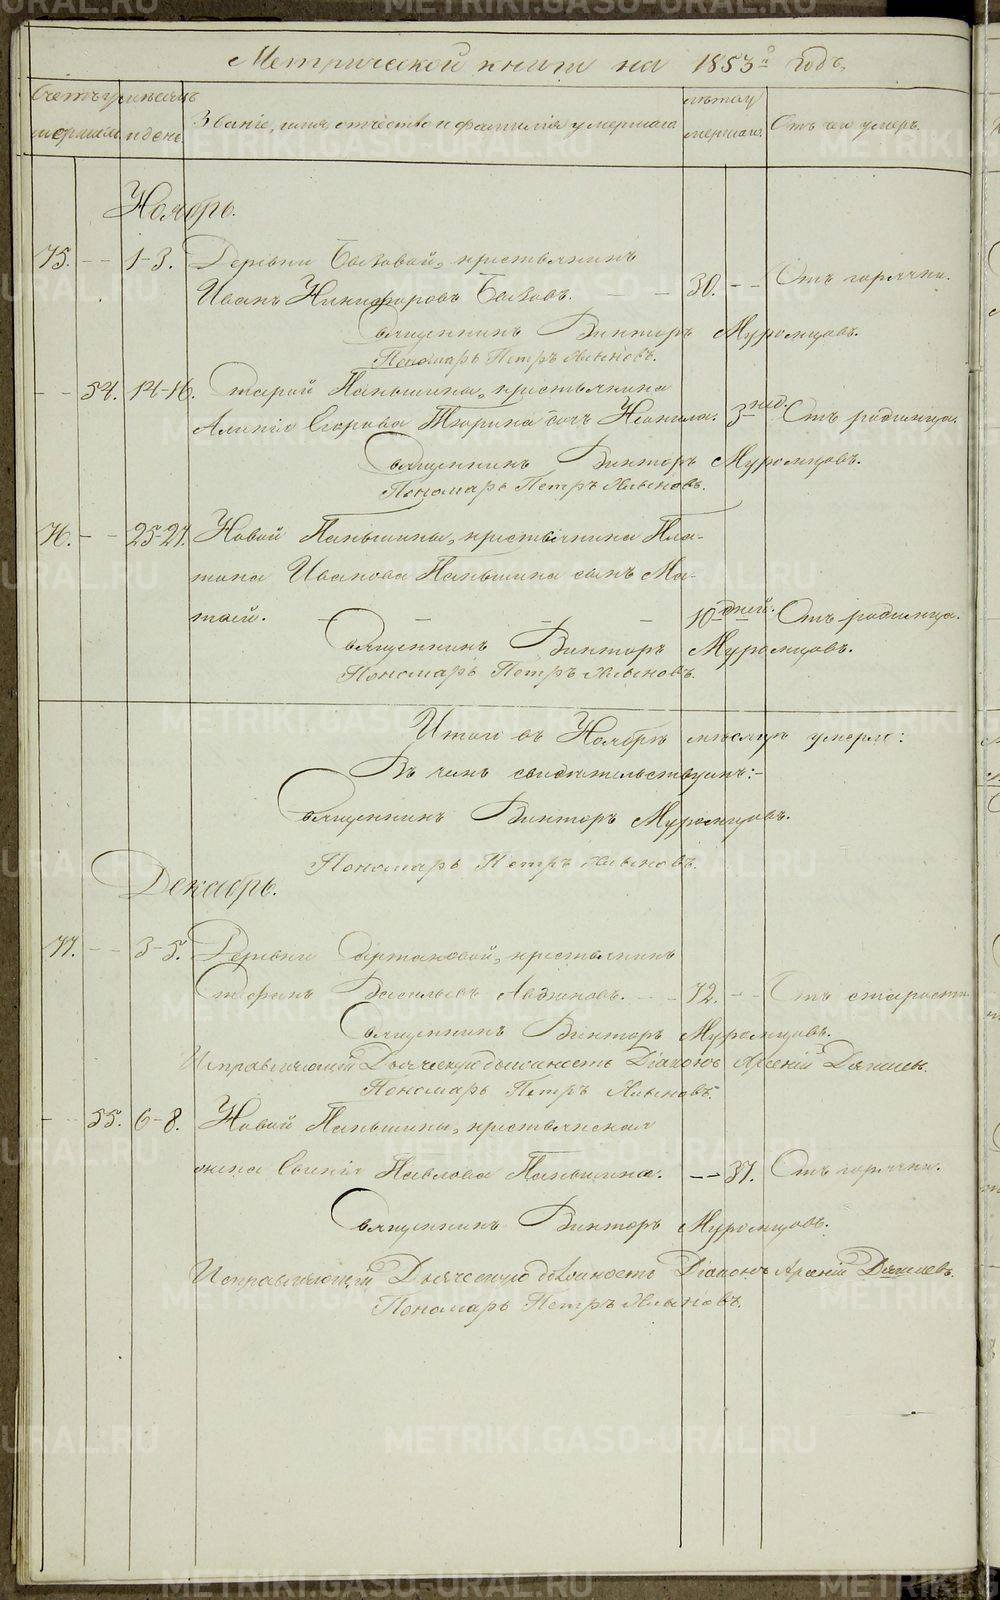 Метрической книги на 1853й Годъ,
Счетъ умершихъ
мѣсяцъ и день
Званіе, имя, отчество и фамилія умершаго
лѣта умершаго.
Отъ чего умеръ.
Ноябрь.
75. — — 1-3. Деревни Бызовой, крестьянинъ
Иванъ Никифоровъ Бызовъ. — — 30. — — Отъ горячки.
Священникъ Викторъ Муромцовъ.
Пономарь Петръ Хлыновъ.
— — 54. 14-16. Старой Паньшина, крестьянина
Егорова Тюрина дочь 3 нед. Отъ родимца.
Священникъ Викторъ Муромцовъ.
Пономарь Петръ Хлыновъ.
76. — — 25-27. Новой Паньшина, крестьянина Пла-
тона Иванова Паньшина сынъ Ма-
твей. — — — — 10 дней. Отъ родимца.
Священникъ Викторъ Муромцовъ.
Пономарь Петръ Хлыновъ.
Итого въ Ноябрѣ мѣсяцѣ умерло:
Въ чемъ свидѣтельствуемъ:-
Священникъ Викторъ Муромцовъ.
Пономарь Петръ Хлыновъ.
Декабрь.
77. — — 3-5. Деревни крестьянинъ
Стефанъ Васильевъ Авдюковъ. — — 72. — — Отъ старости
Священникъ Викторъ Муромцовъ.
Исправляющій Дьяческую должность Діаконъ Арсеній
Пономарь Петръ Хлыновъ.
— — 55. 6-8. Новой Паньшины, крестьянская
жена Евгенія Павлова Паньшина. — — 37. Отъ горячки.
Священникъ Викторъ Муромцовъ.
Исправляющій Дьяческую должность Діаконъ Арсеній
Пономарь Петръ Хлыновъ.
METRIKI.GASO-URAL.RU